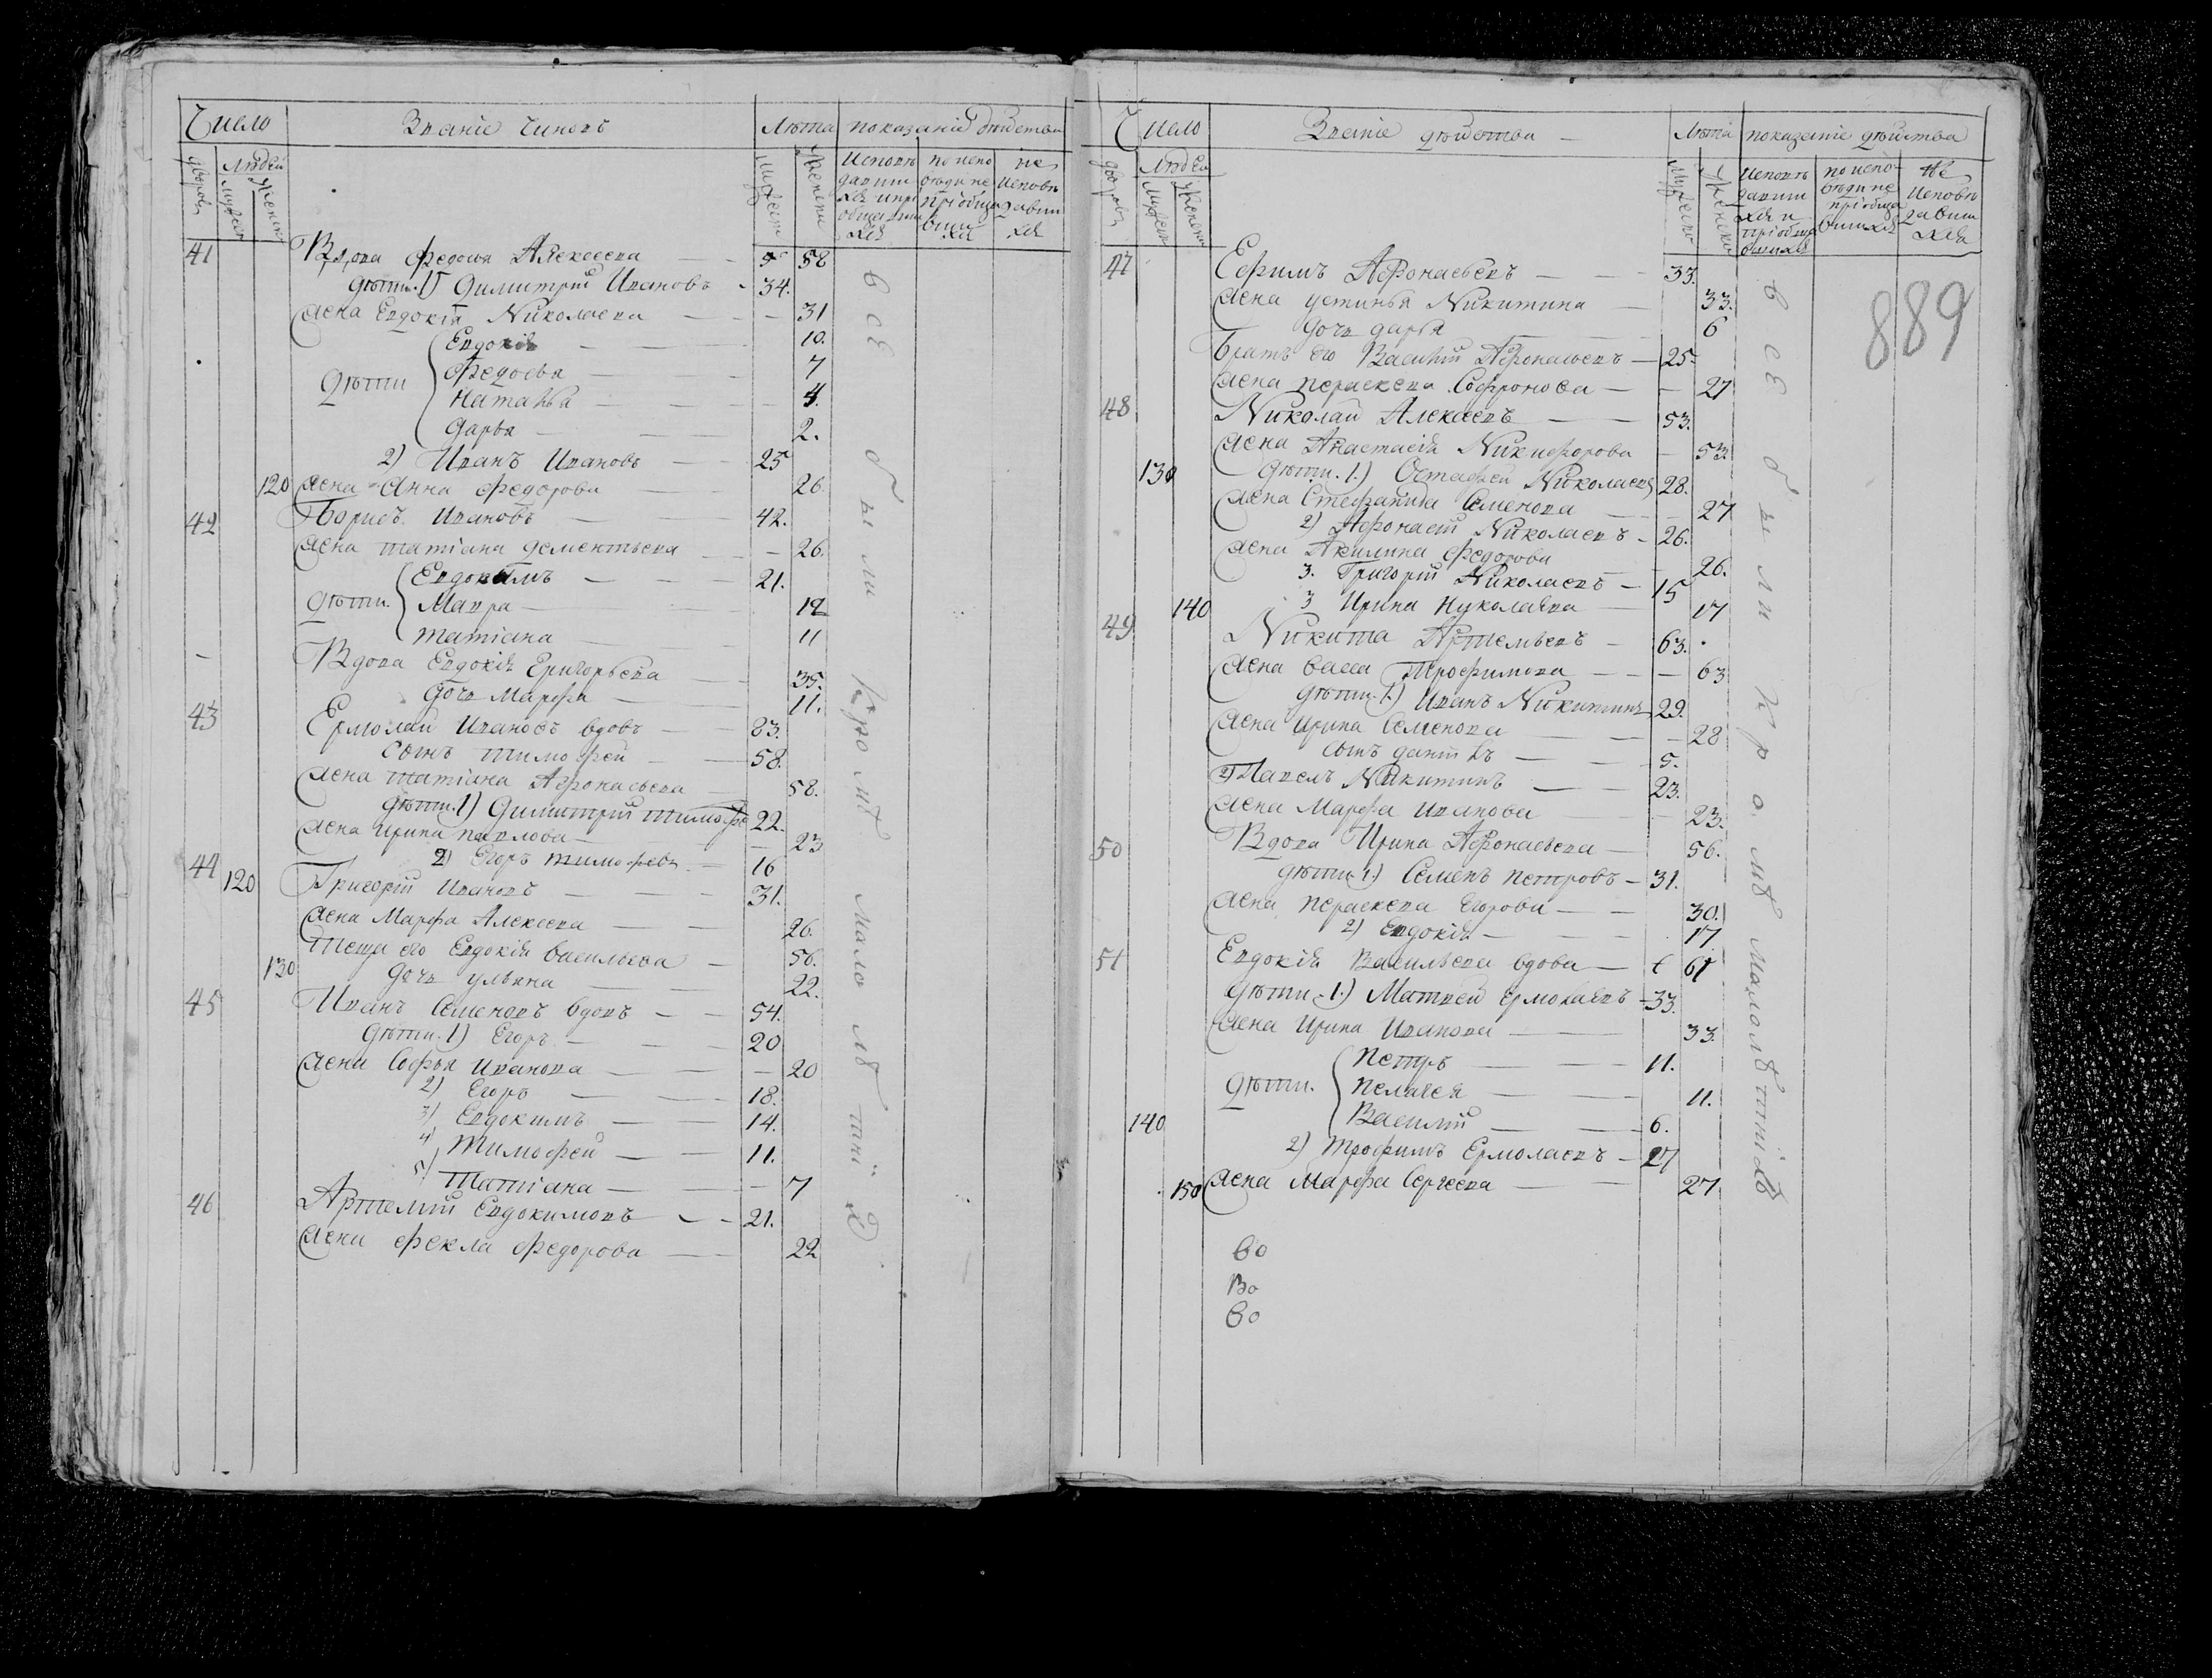 Число Званіе чиновъ Лѣта показаніе дѣйства
дворовъ Людей мужеск женски мужеск женски Исповѣ по испо не
давши вѣди не исповѣ
хся и прі пріобща давши
общавши вши хся
хся хся
41 Вдова Федосья Алексеева 58
дѣти. 1) Димитрій Ивановъ 34.
жена Евдокія Николаева 31
Евдокія 10.
Федосья 7
дѣти Наталья 4.
Дарья 2.
2) Иванъ Ивановъ 25
120 жена Анна Федорова 26.
42 Борисъ Ивановъ 42.
жена Татіана Дементьева 26.
Евдокимъ 21.
дѣти. Мавра 12
Татіана 11
Вдова Евдокія Григорьева 35.
дочь Марфа 11.
43 Ермолай Ивановъ вдовъ 83.
сынъ Тимофей 58.
жена Татіана Афонасьева 58.
дѣти. 1) Димитрій Тимофе 22.
жена Ирина Павлова 23
2) Егоръ Тимофевъ 16
44 120 Григорій Ивановъ 31.
жена Марфа Алексеева 26.
Теща его Евдокія Васильева 56.
130 дочь Ульяна 22.
45 Иванъ Семеновъ вдовъ 54.
дѣти. 1) Егоръ 20
жена Софья Иванова 20
2) Егоръ 18.
3) Евдокимъ 14.
4) Тимофей 11.
5) Татіана 7
46 Артемій Евдокимовъ 21.
жена Фекла Федорова 22
все были кромѣ малолѣтніхъ
Число Званіе дѣйства Лѣта показаніе дѣйства
дворовъ Людей мужеск женски мужеско женско Исповѣ по испо- не
давши вѣди не исповѣ
хся и пріобща давши
пріобща вшихся хся
вшихся
889
47 Ефимъ Афонасьевъ 33.
жена Устинья Никитина 33.
дочь Дарья 6
Братъ его Василій Афонасьевъ 25
жена Параскева Софронова 27
48 Николай Алексеевъ 53.
жена Анастасія Никифорова 53.
130 дѣти. 1.) Остафей Николаевъ 28.
жена Стефанида Семенова 27
2) Афонасій Николаевъ 26.
жена Акилина Федорова 26.
3. Григорій Николаевъ 15
140 3 Ирина Николаева 17
49 Никита Артемьевъ 63.
жена Васса Трофимова 63
дѣти. 1.) Иванъ Никитинъ 29.
жена Ирина Семенова 28
сынъ 5.
2) Павелъ Никитинъ 23.
жена Марфа Иванова 23.
50 Вдова Ирина Афонасьева 56.
дѣти 1.) Семенъ Петровъ 31.
жена Параскева Егорова 30.
2) Евдокія 17
51 Евдокія Васильева вдова 61
дѣти 1.) Матвей Ермолаевъ 33.
жена Ирина Иванова 33.
Петръ 11.
дѣти. Пелагея 11.
140 Василій 6.
2) Трофимъ Ермолаевъ 27
150 жена Марфа Сергеева 27
все были кромѣ малолѣтніхъ
Во
Во
Во